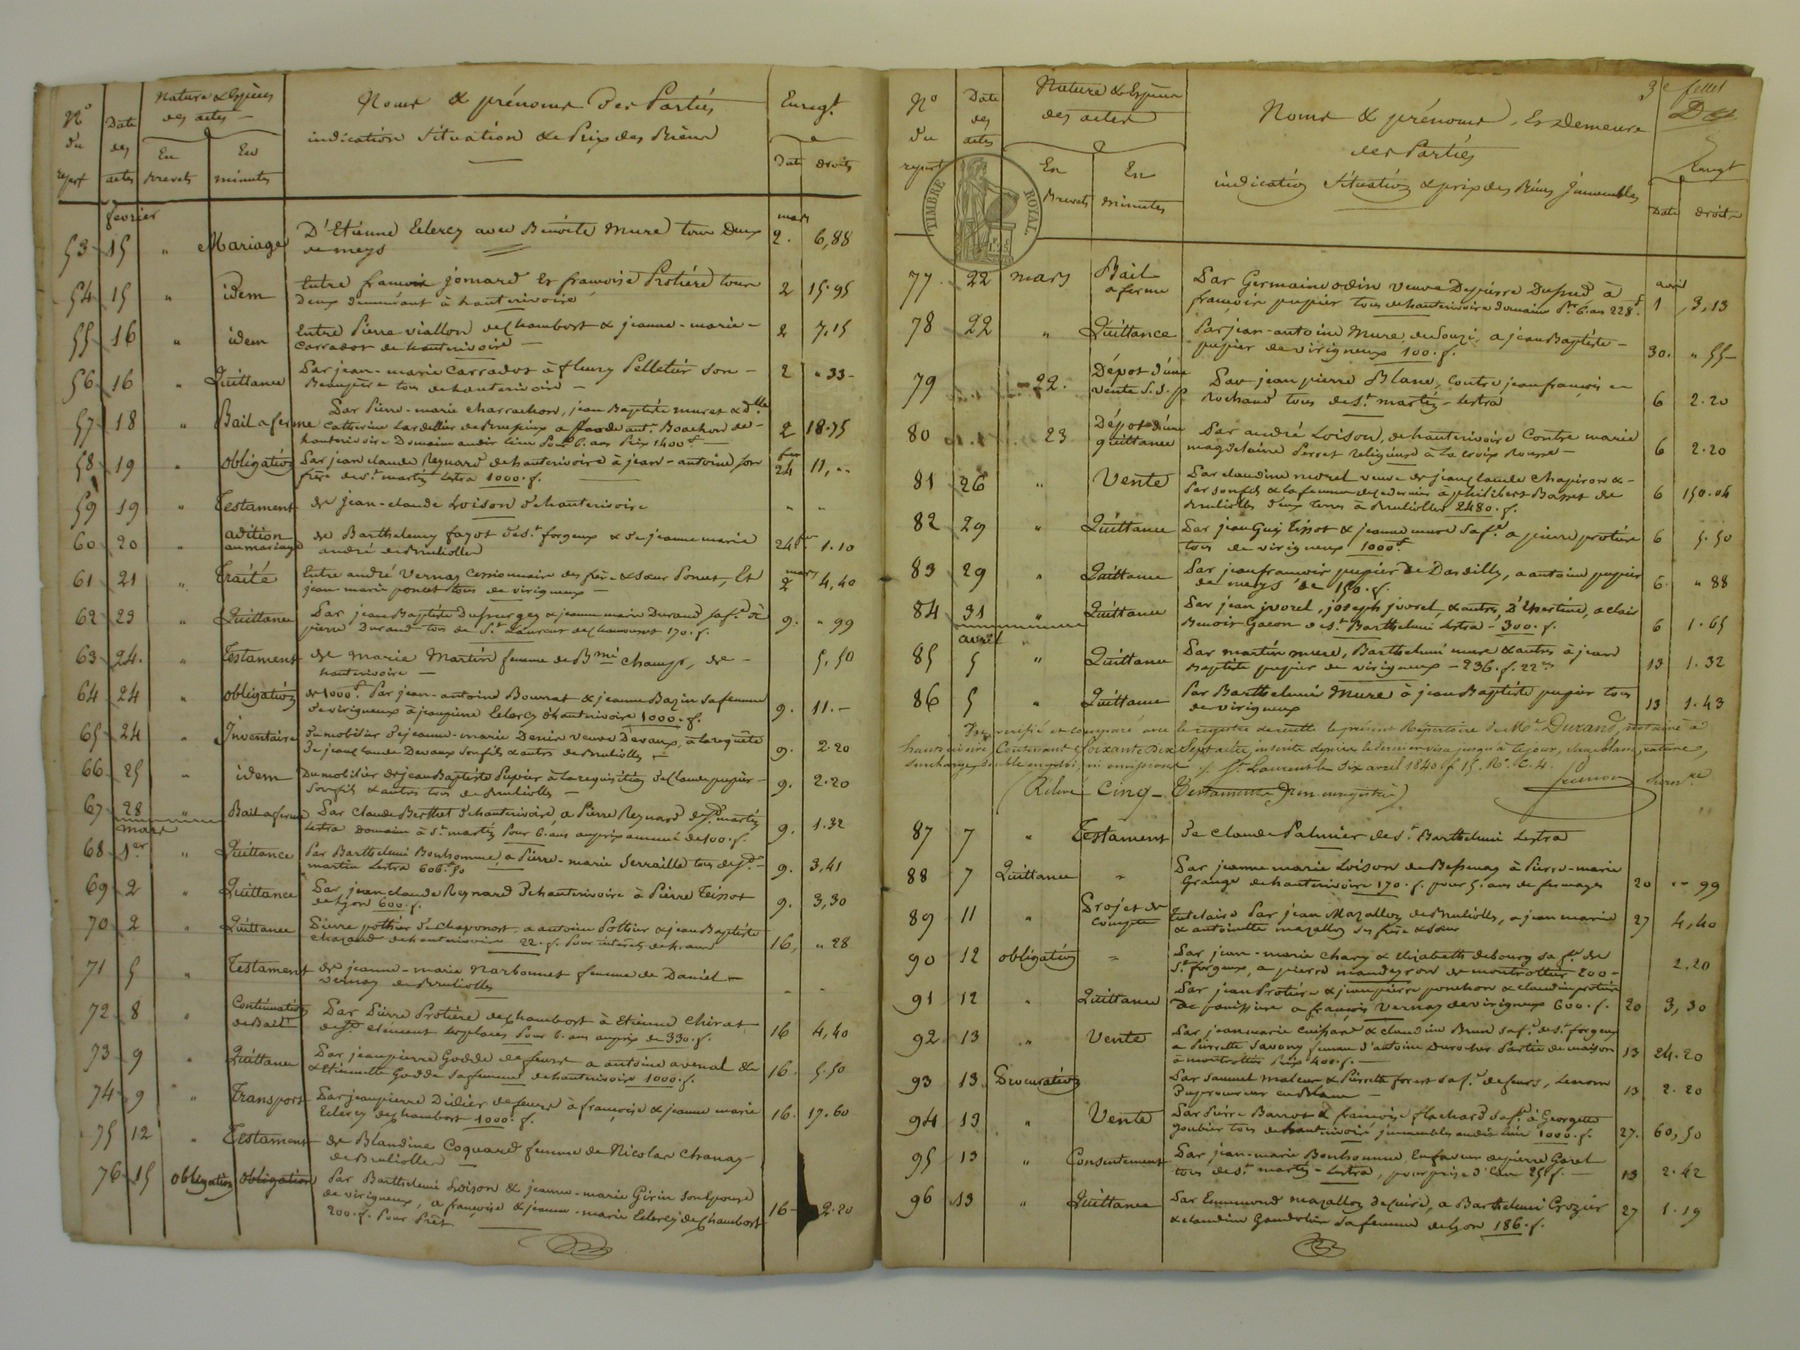 N.o du repert
Date des actes
Nature & Espèces des actes
En Brevets
En minutes
Noms & prénoms des Parties
indication Situation & Prix des Biens
Enregt.
Date
droits
fevrier
mars
53 15 " Mariage D'Etienne Leclercq avec Benoite Mure tous deux 2. 6,88
de meys
54 15 " idem Entre francois jomard et francoise Protière tous 2 15.95
deux demeurant à hauterivoire
55 16 " idem Entre Pierre Viallon de Chambost & jeanne-marie 2 7,15
Carrador de hauterivoire
56 16 " Quittance Par jean-marie Carrador à fleury Pelletier son 2 " 33
Beaupère tous de hauterivoire
57 18 " Bail a ferme Par Pierre-marie charrachon, jean Baptiste muret & dlle 2 18.75
Catherine Lardellier de Brussieux a ant. Bouchon de
hauterivoire Domaine audit lieu Pour 6. ans Prix 1400 f
58 19 " obligation Par jean claude Reynard de hauterivoire à jean-antoine son fer 24 11, "
frère de St martin Lestra 1000. f.
59 19 " Testament de jean-claude Loison d'hauterivoire " "
60 20 " adition au mariage de Barthelemy fayot de St. forgeux & de jeanne marie 24 fer 1.10
andré de Brullioles
61 21 " Traité Entre andré Vernay Cessionnaire des frère & sœur Poncet, Et mars 2 4,40
jean marie poncet tous de virigneux
62 23 " Quittance Par jean Baptiste Dufourgez & jeanne marie Durand sa fe. à 9. " 99
pierre Durand tous de St. Laurent de Chamousset 170. f.
63 24. " Testament de Marie Martin femme de Bmi Champs, de 5,50
hauterivoire
64 24 " obligation de 1000 f Par jean-antoine Bourrat & jeanne Bazin sa femme 9. 11.-
de virigneux à jeanpierre Leclercq d'hauterivoire 1000. f.
65 24 " Inventaire Du mobilier de jeanne-marie Denis veuve Devaux, à la requête 9. 2.20
de jean claude Devaux son fils & autres de Brullioles
66 25 " idem Du mobilier de jean Baptiste Pupier à la requisition de Claude pupier 9. 2.20
son fils & autres tous de Brullioles
67 28 " Bail a ferme Par Claude Berthet d'hauterivoire, a Pierre Reynard de St. martin 9. 1.32
Lestra domaine à St. martin Pour 6. ans au prix annuel de 100. f.
mars
68 1er " Quittance Par Barthelemi Bonhomme, a Pierre-marie Serraille tous de St 9. 3,41
martin Lestra 606 f. 50
69 2 " Quittance Par jean claude Reynard d'hauterivoire à Pierre Teissot 9. 3,30
de Lyon 600. f.
70 2 " Quittance Pierre pothier de Chaponost, a antoine Pothier & jean Baptiste 16, " 28
Chazaud de hauterivoire 22. f. Pour interets
71 5 " Testament de jeanne-marie Narbonnet femme de Daniel - -
Vernay de Brullioles
72 8 " Continuation de Bail Par Pierre Protière de Chambost à Etienne Chirat 16 4,40
de St. clement les places Pour 6. ans au prix de 330. f.
73 9 " Quittance Par jeanpierre Godde de feurs a antoine avenal & 16. 5.50
Etiennette Godde sa femme de hauterivoire 1000. f.
74 9 " Transport Par jeanpierre Didier de feurs à françoise & jeanne marie 16. 17.60
Leclercq de Chambost 1000. f.
75 12 " Testament de Blandine Coquard femme de Nicolas Chanay
de Brullioles
76 15 obligation obligation Par Barthelemi Loison & jeanne-marie Girin son Epouse 16 2.20
de virigneux, a françoise & jeanne-marie Leclercq de Chambost
200. f. Pour Prêt
3e fillet
N.o du repert
Date des actes
Nature & Espèces des actes
En Brevets
En minutes
Noms & prénoms, Et Demeure
des Parties
indication Situation & prix des Biens Immeubles
Enregt
Date
droits
TIMBRE ROYAL
avril
77 22 mars Bail a ferme Par Germaine odin veuve De pierre Dufour à 1 3,13
françois pupier tous de hauterivoire domaine Pr. 6. ans 228 f.
78 22 " Quittance Par jean-antoine Mure, de Souzi, a jean Baptiste 30. " 55
pupier de virigneux 100. f.
79 22. Dépot d'une vente S.S.P Par jean pierre Blanc, contre jean françois 6 2.20
Rochaud tous de St. martin-Lestra
80 23 Dépot d'une quittance Par andré Loison, de hauterivoire Contre marie 6 2.20
magdelaine Perret religieuse à la croix Rousse
81 26 " Vente Par claudine morel veuve de jean claude Chapiron & 6 150.04
Par son fils & la femme de ce dernier à philibert Basset de
Brullioles deux terres à Brullioles 2480. f.
82 29 " Quittance Par jean Guy Tissot & jeanne mure sa fe. a pierre protière 6 5.50
tous de virigneux 1000 f
83 29 " Quittance Par jean francois pupier De Dardilly, a antoine pupier 6. " 88
de meys de 150. f.
84 31 " Quittance Par jean juvrel, joseph juvrel, & autres, D'Essertine, a clair 6 1.65
Benoit Gacon de St. Barthelemi Lestra - 300. f.
avril
85 5 " Quittance Par martin mure, Barthelemi mure & autres à jean 13 1.32
Baptiste pupier de virigneux - 236. f. 22 c
86 5 " Quittance Par Barthelemi Mure à jean Baptiste pupier tous 13 1.43
de virigneux
Vu, verifié et comparé avec le registre de recette le présent Répertoire de Me. Durand, notaire à
hauterivoire, Contenant Soixante Dix Sept actes, inscrits depuis le dernier visa jusqu'à ce jour, sans blanc, rature,
surcharge, double emploi, ni omissions. St. Laurent le dix avril 1840 f. 15. Ro. C. 4.
(Relevé Cinq Testaments non enregistrés)
87 7 " Testament de Claude Palmier de St. Barthelemi Lestra
88 7 Quittance " Par jeanne marie Loison de Bessenay à Pierre-marie 20 " 99
Grange de hauterivoire 170. f. pour 5. ans de fermages
89 11 " Projet de Compte tutelaire Par jean Mazallon de Brullioles, a jean marie 27 4,40
& antoinette mazallon ses frère & sœur
90 12 obligation " Par jean-marie Chary & Elizabeth debourg sa fe. de 2.20
St. forgeux, a pierre mandeyron de montrottier 200
91 12 " Quittance Par jean Protière & jeanpierre ponchon & claudine protière 20 3,30
De fenissieu a françois Vernay de virigneux 600. f.
92 13 " Vente Par jean marie Cuissard & claudine Brun sa fe. de St. forgeux 13 24.20
a Pierrette Savony femme d'antoine Durocher Partie de maison
à montrottier Prix 400. f.
93 13 Procuration Par Samuel Maleur & Pierrette forest sa fe. de feurs, Le nom 13 2.20
Du procureur en Blanc
94 13 " Vente Par Pierre Barrot & francoise flachard sa fe. à Georgette 27. 60,50
Goubier tous de hauterivoire immeubles audit lieu 1000. f.
95 13 " Consentement Par jean-marie Bonhomme, En faveur de pierre Garel 13 2.42
tous de St. martin-Lestra, pour prise d'eau 25 f.
96 13 " Quittance Par Ennemond mazallon de Cuire, a Barthelemi Crozier 27 1.19
& claudine Gaudolier sa femme de Lyon 186. f.